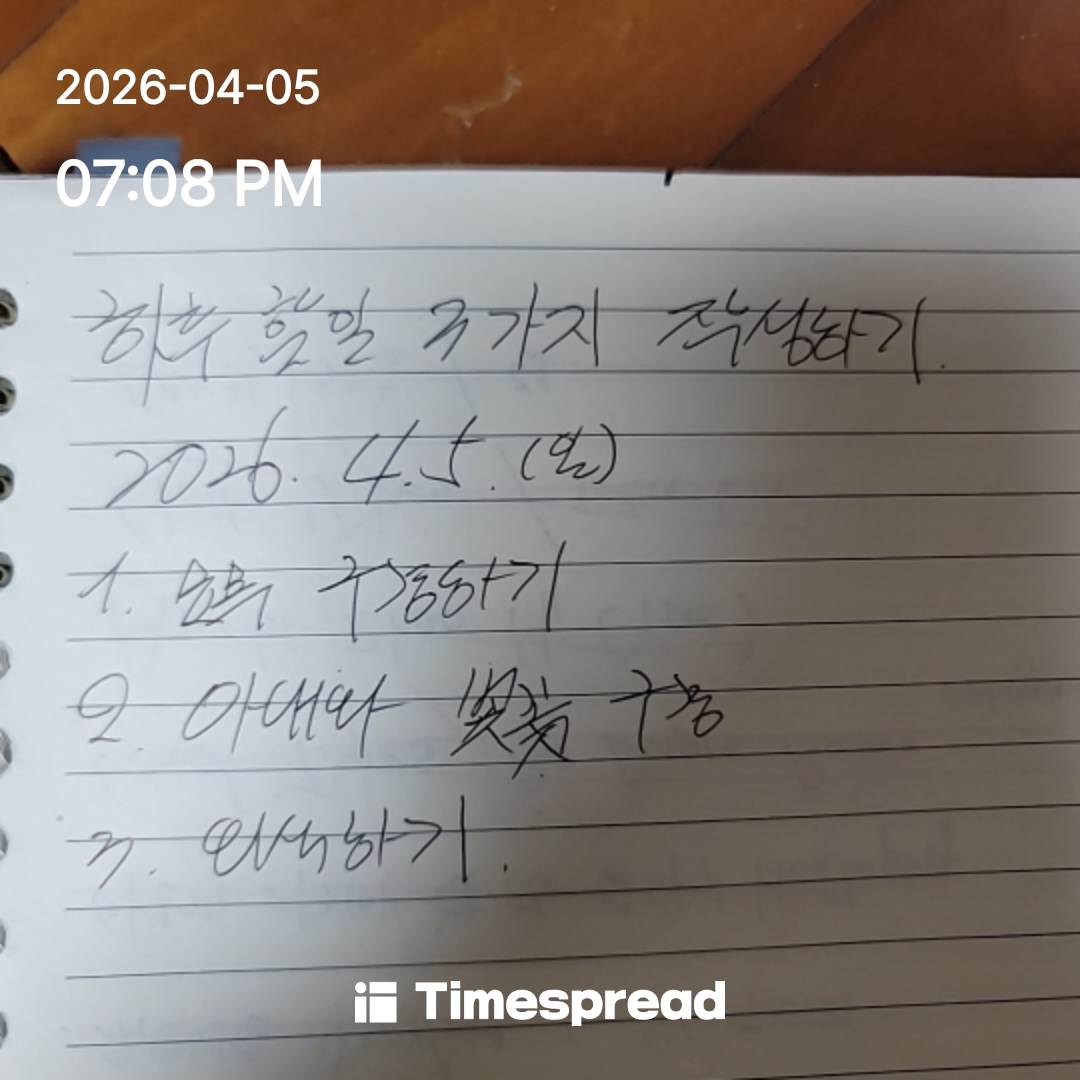 2026-04-05
07:08 PM
하루 할일 3가지 작성하기.
2026. 4.5. (일)
1. 구경하기
2. 아내와 벚꽃 구경
3. 하기.
Timespread